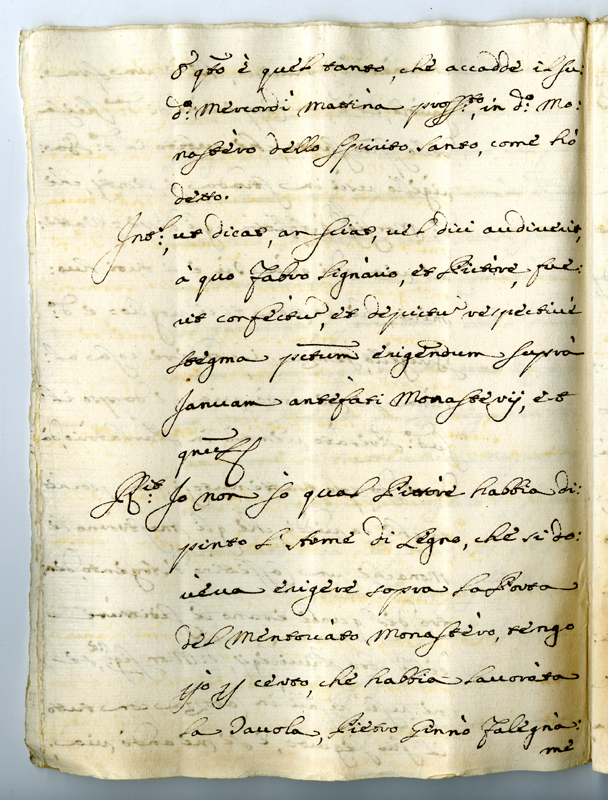 & q̃to è quel tanto, che accadde il su:
d:º Mercordì mattina pross:to, in d:º Mo:
nastèro dello Spirito Santo, come hò
detto.
Int:s, ut dicat, an sciat, vel dici audiverit,
à quo Fabro lignàrio, et Pictòre, fue:
rit confèctũ, et depictũ respectivè
stegma p̃tum erigendum suprà
Januam antèfati Monasterij, et
Rit: Io non sò qual Pittòre habbia di:
pinto l'Arme di Legno, che si do:
vèva erigere sopra la Porta
del mentovàto Monastèro, tengo
però p certo, che habbia lavoràta
la Tavola, Pietro Ginnò Falegnà:
me